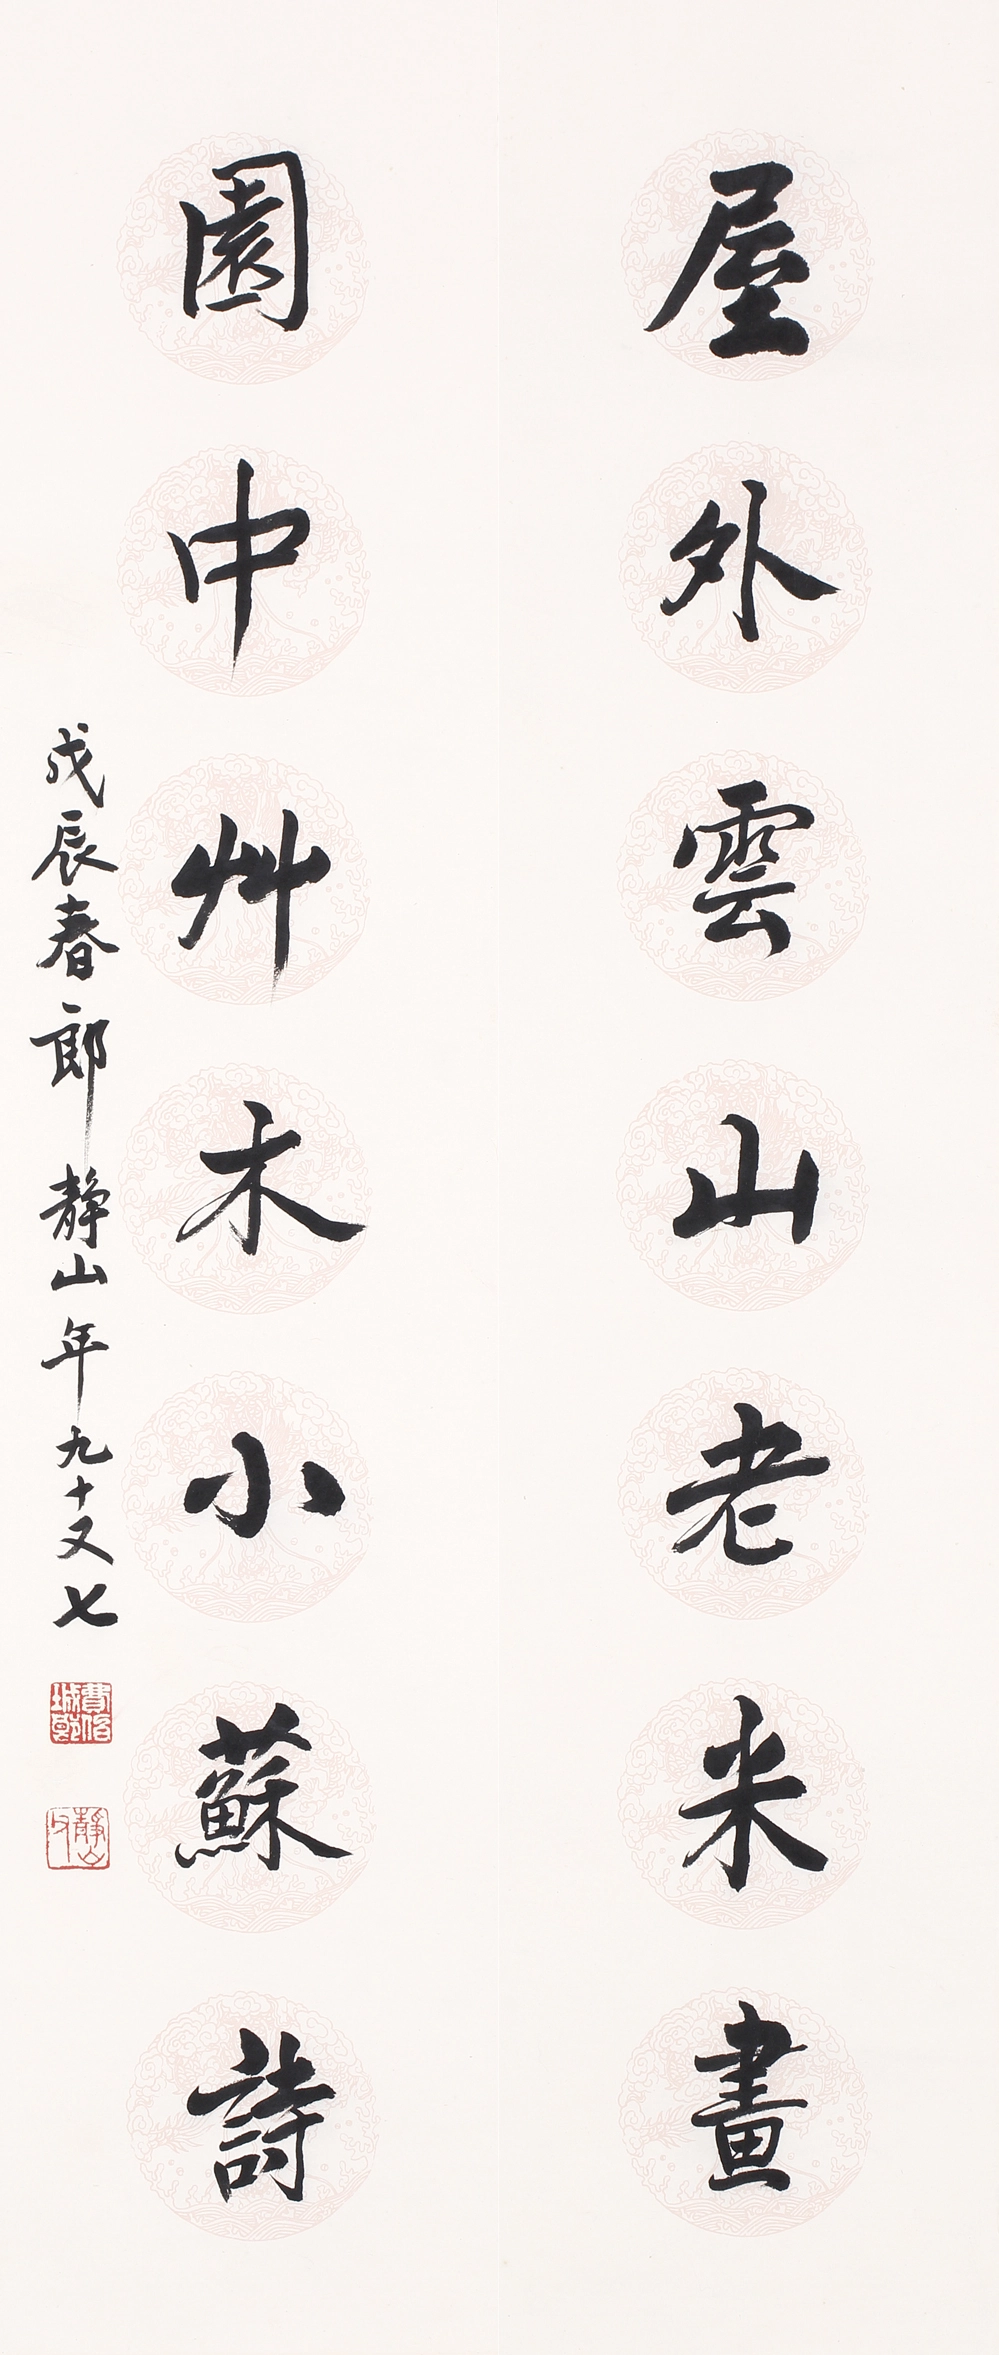 屋外雲山老米畫
園中艸木小蘇詩
戊辰春郎靜山年九十又七